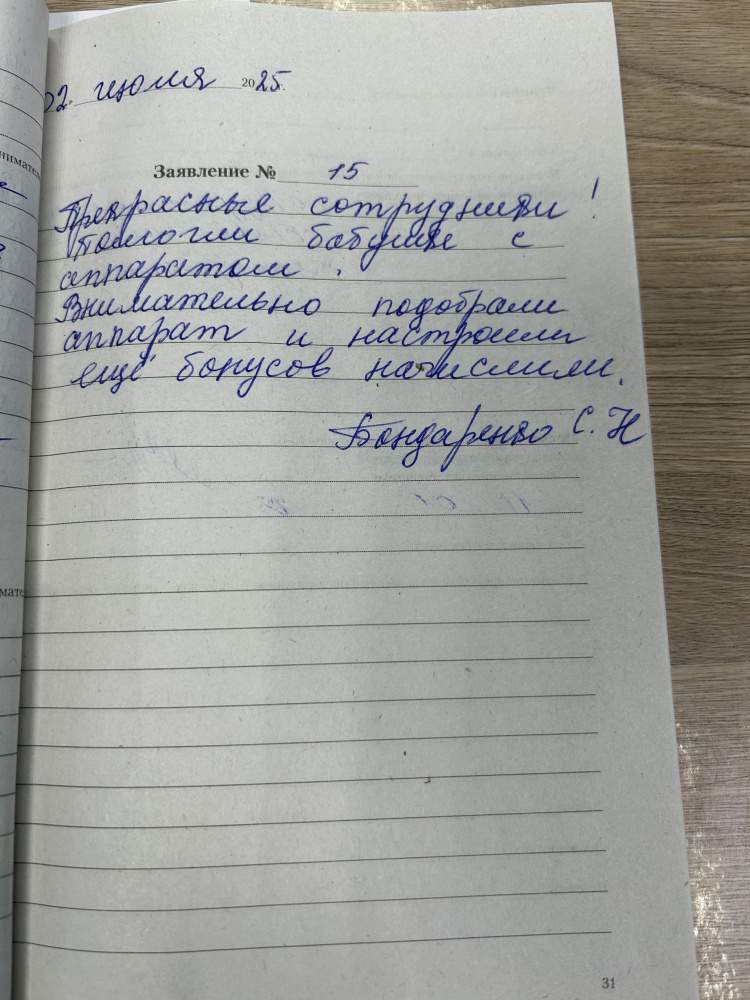 02. июля 2025г.
Заявление № 15
Прекрасные сотрудники!
Помогли бабушке с
аппаратом.
Внимательно подобрали
аппарат и настроили
ещё бонусов начислили.
Бондаренко С. Н
31